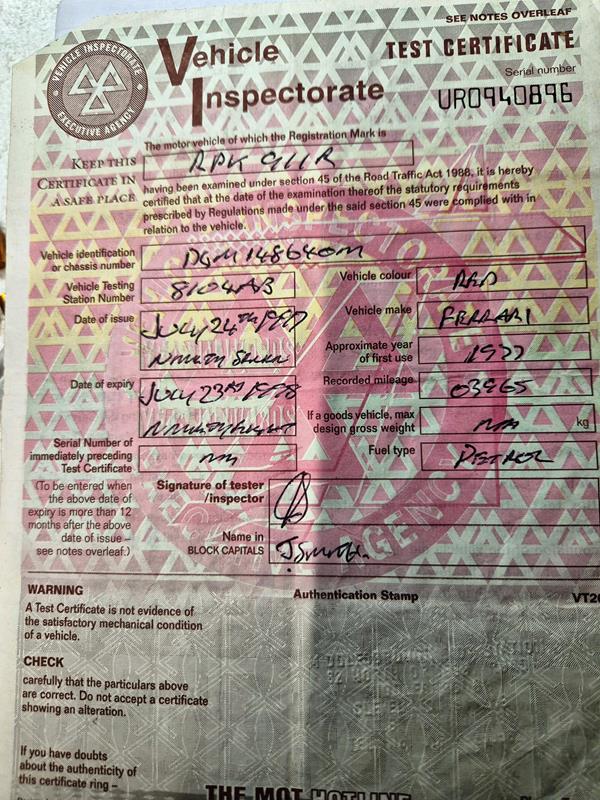 SEE NOTES OVERLEAF
VEHICLE INSPECTORATE
EXECUTIVE AGENCY
Vehicle Inspectorate
TEST CERTIFICATE
Serial number
UR0940896
The motor vehicle of which the Registration Mark is
RPK 911R
KEEP THIS
CERTIFICATE IN
A SAFE PLACE
having been examined under section 45 of the Road Traffic Act 1988, it is hereby
certified that at the date of the examination thereof the statutory requirements
prescribed by Regulations made under the said section 45 were complied with in
relation to the vehicle.
Vehicle identification
or chassis number
DGM148640M
Vehicle Testing
Station Number
8104AB
Vehicle colour
RED
Date of issue
JULY 24TH 1997
NINETY SEVEN
Vehicle make
FERRARI
Approximate year
of first use
1977
Date of expiry
JULY 23RD 1998
NINETY EIGHT
Recorded mileage
03965
If a goods vehicle, max
design gross weight
kg
Serial Number of
immediately preceding
Test Certificate
Fuel type
PETROL
(To be entered when
the above date of
expiry is more than 12
months after the above
date of issue –
see notes overleaf.)
Signature of tester
/inspector
Name in
BLOCK CAPITALS
J SMITH.
WARNING
A Test Certificate is not evidence of
the satisfactory mechanical condition
of a vehicle.
Authentication Stamp
VT20
CHECK
carefully that the particulars above
are correct. Do not accept a certificate
showing an alteration.
If you have doubts
about the authenticity of
this certificate ring –
THE MOT HOTLINE